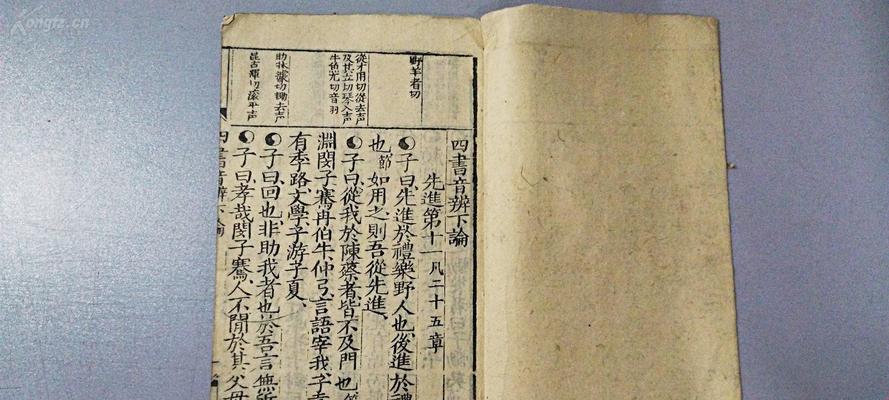 Kongfz.cn
野羊者切
從才用切從去声
及其立切琴入声
牛伯尤切音羽
昆古渾切滚平声
四書音辨下論
先進第十一凡二十五章
子曰先進於禮樂野人也後進於禮
也節如用之則吾從先進
子曰從我於陳蔡者皆不及門也節
淵閔子騫冉伯牛仲弓言語宰我子
有季路文學子游子夏
子曰回也非助我者也於吾言無所
子曰孝哉閔子騫人不閒於其父母
四書音辨下論